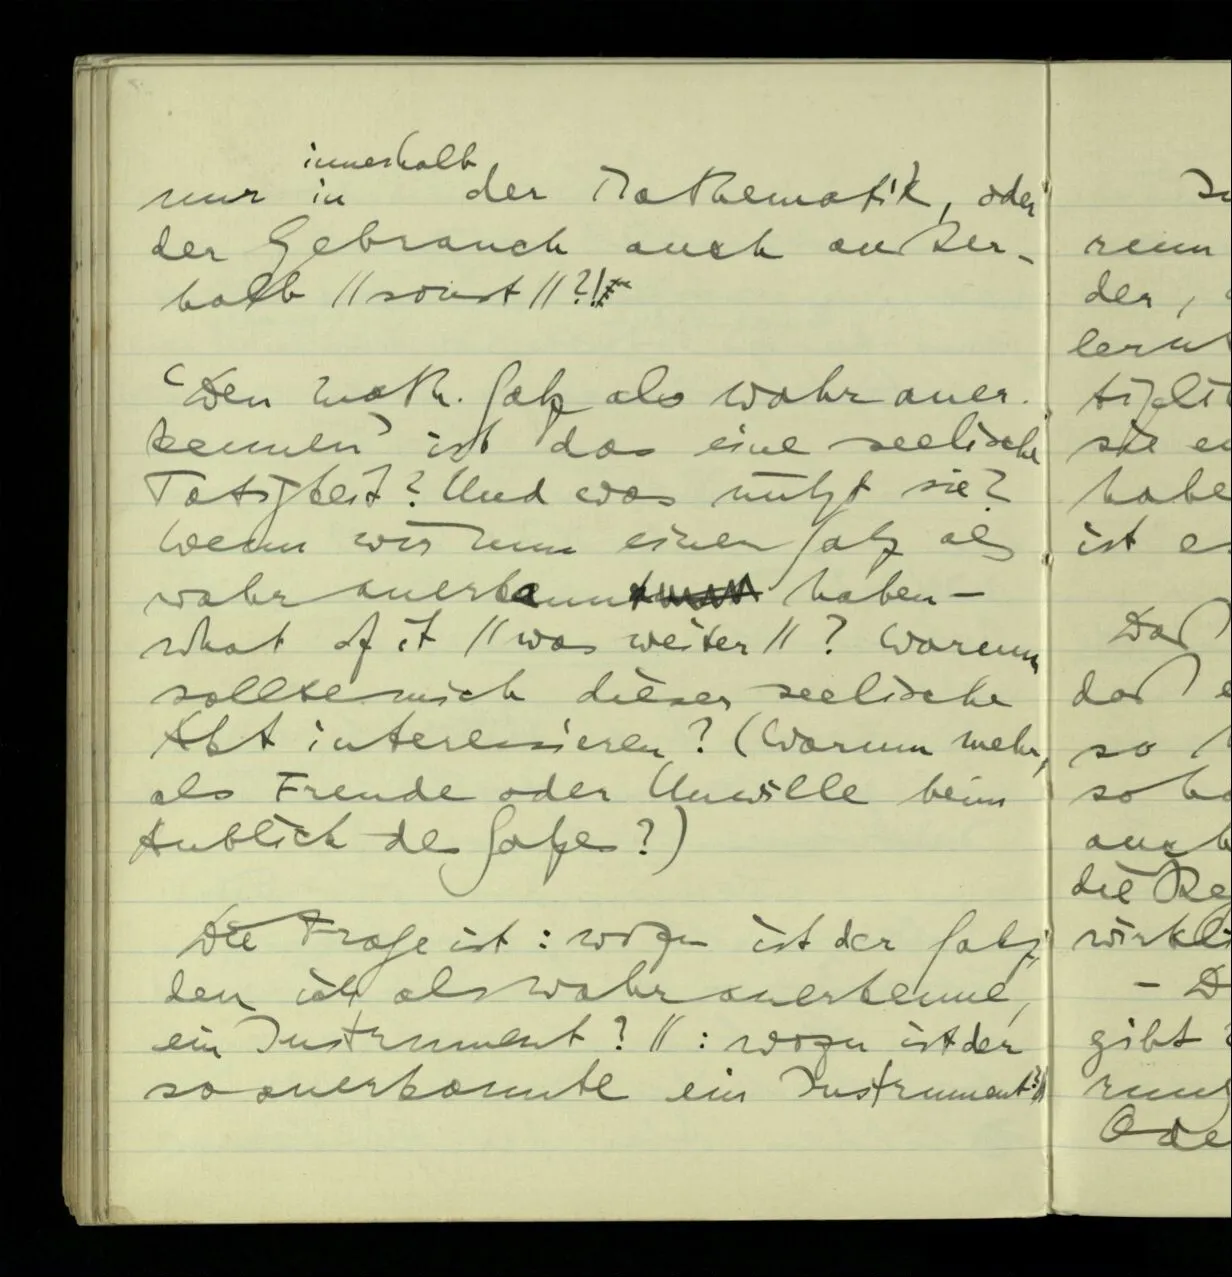 innerhalb
nur in der Mathematik, oder
der Gebrauch auch außer-
halb //sonst//?!
‘Den math. Satz als wahr aner-
kennen’ ist das eine seelische
Tätigkeit? Und was nützt sie?
Wenn wir nun einen Satz als
wahr anerkannt haben –
what of it //was weiter//? Warum
sollte mich dieser seelische
Akt interessieren? (Warum mehr,
als Freude oder Unwille beim
Anblick des Satzes?)
Die Frage ist: wozu ist der Satz,
den ich als wahr anerkenne,
ein Instrument? //: wozu ist der
so anerkannte ein Instrument?//
renn
der,
lern
sie
habe
ist es
Daß
daß
so
so
auch
die Re
wirkli
– D
gibt
Ode